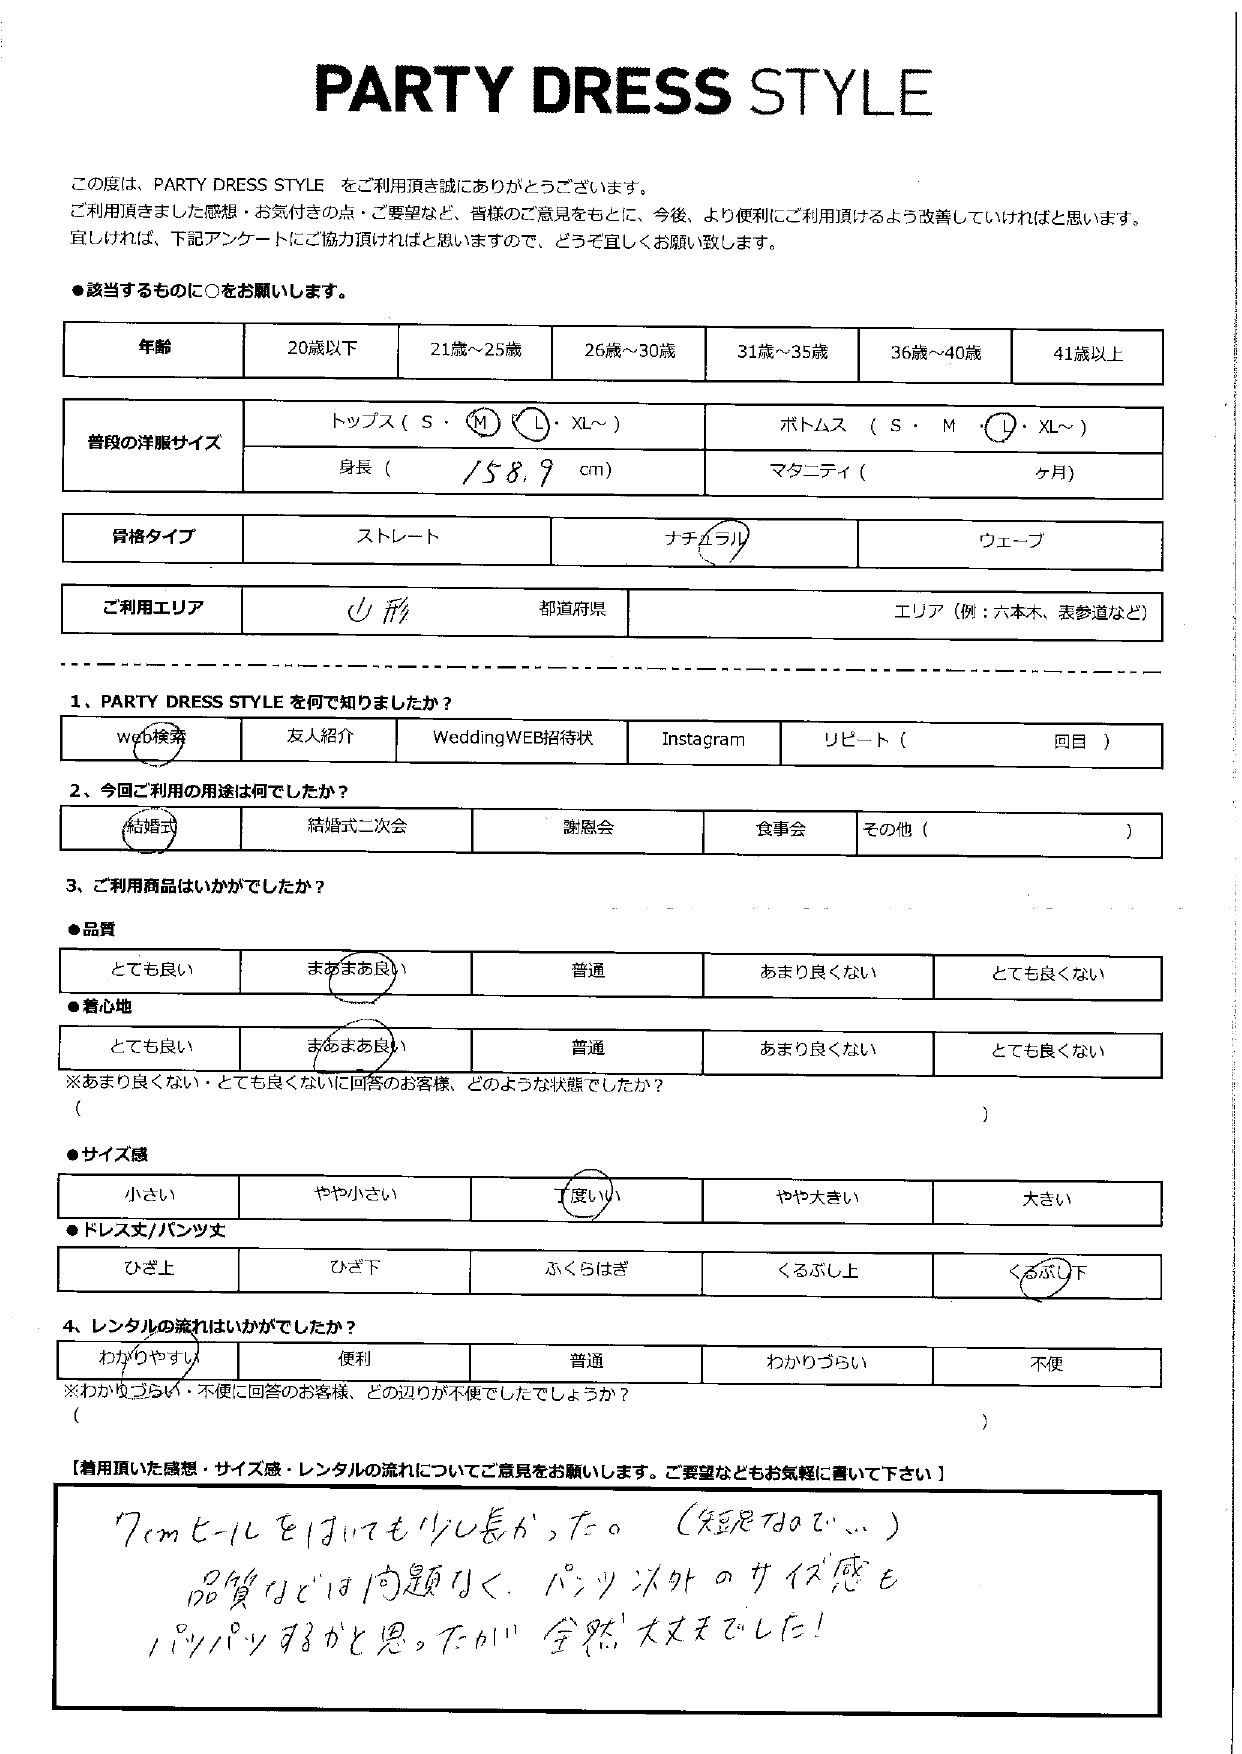 PARTY DRESS STYLE
この度は、PARTY DRESS STYLE をご利用頂き誠にありがとうございます。
ご利用頂きました感想・お気付きの点・ご要望など、皆様のご意見をもとに、今後、より便利にご利用頂けるよう改善していければと思います。
宜しければ、下記アンケートにご協力頂ければと思いますので、どうぞ宜しくお願い致します。
●該当するものに○をお願いします。
年齢 20歳以下 21歳～25歳 26歳～30歳 31歳～35歳 36歳～40歳 41歳以上
普段の洋服サイズ
トップス ( S ・ M ・ L ・ XL～ ) ボトムス ( S ・ M ・ L ・ XL～ )
身長 ( 158.9 cm) マタニティ ( ヶ月)
骨格タイプ ストレート ナチュラル ウェーブ
ご利用エリア 山形 都道府県 エリア（例：六本木、表参道など）
1、PARTY DRESS STYLE を何で知りましたか？
web検索 友人紹介 WeddingWEB招待状 Instagram リピート ( 回目 )
2、今回ご利用の用途は何でしたか？
結婚式 結婚式二次会 謝恩会 食事会 その他 ( )
3、ご利用商品はいかがでしたか？
●品質
とても良い まあまあ良い 普通 あまり良くない とても良くない
●着心地
とても良い まあまあ良い 普通 あまり良くない とても良くない
※あまり良くない・とても良くないに回答のお客様、どのような状態でしたか？
( )
●サイズ感
小さい やや小さい 丁度いい やや大きい 大きい
●ドレス丈/パンツ丈
ひざ上 ひざ下 ふくらはぎ くるぶし上 くるぶし下
4、レンタルの流れはいかがでしたか？
わかりやすい 便利 普通 わかりづらい 不便
※わかりづらい・不便に回答のお客様、どの辺りが不便でしたでしょうか？
( )
【着用頂いた感想・サイズ感・レンタルの流れについてご意見をお願いします。ご要望などもお気軽に書いて下さい】
7cmヒールをはいても少し長かった。（短足なので…）
品質などは問題なく、パンツ以外のサイズ感も
パツパツするかと思ったが 全然大丈夫でした！